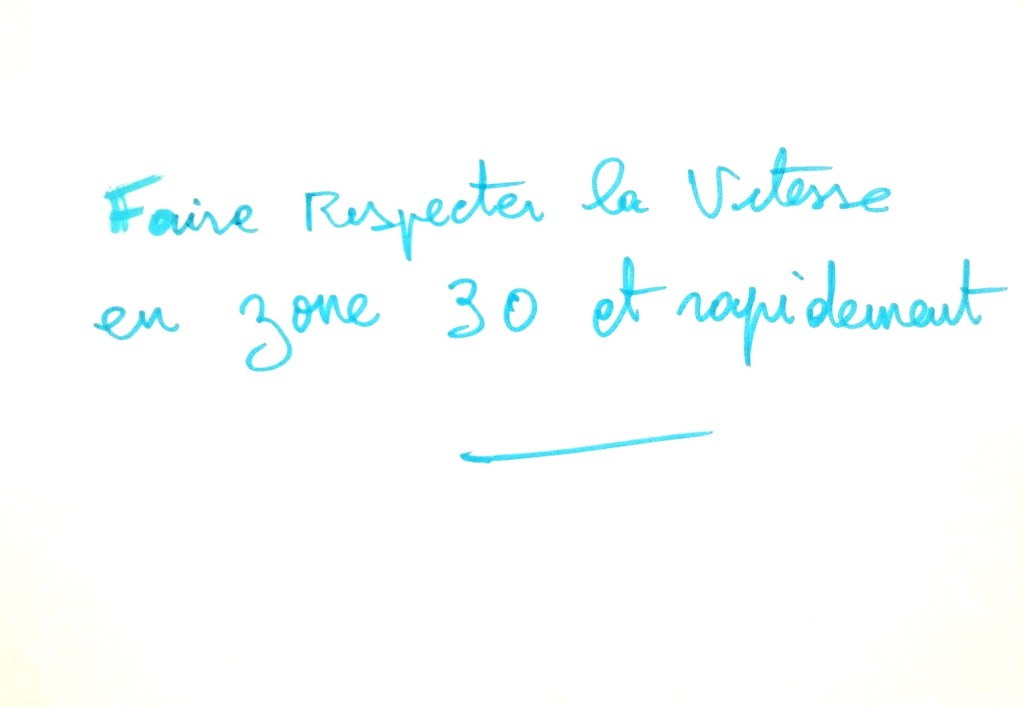 Faire Respecter la Vitesse
en zone 30 et rapidement